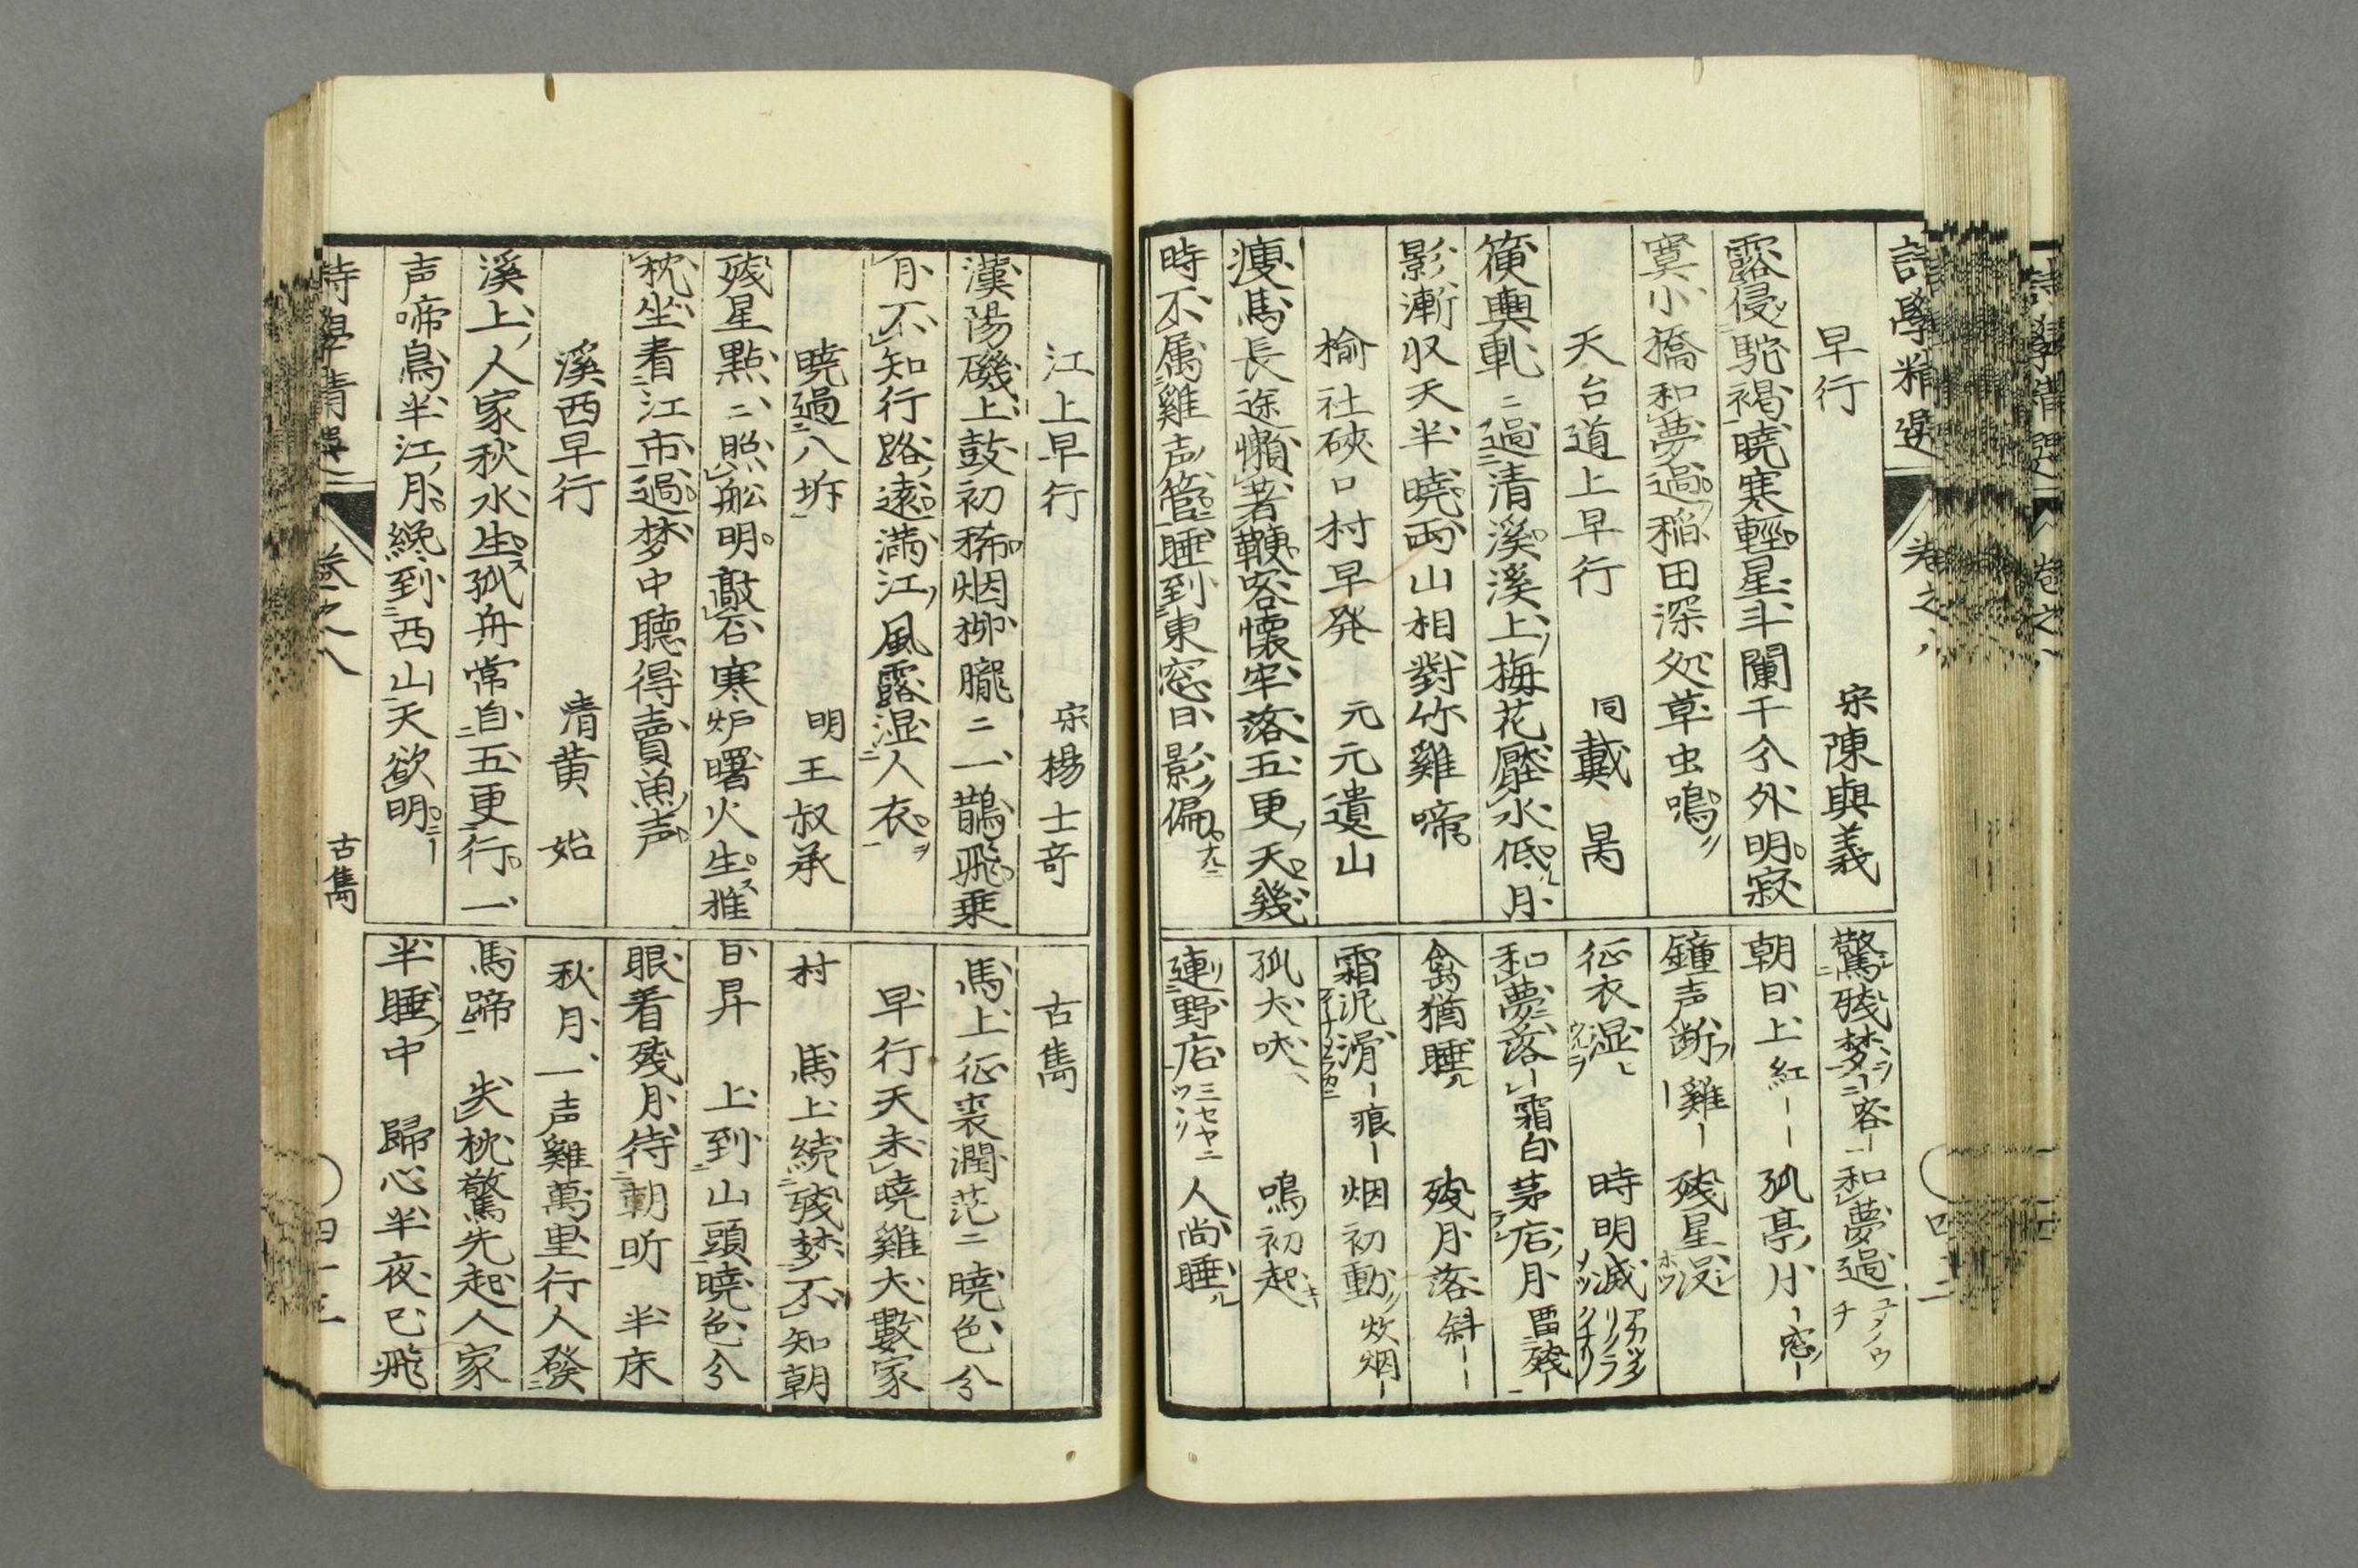 詩學精選 卷之八
早行 宋陳與義
露侵駝褐曉寒輕星斗闌干分外明寂
寞小橋和夢過稲田深処草虫鳴
天台道上早行 同戴昺
篗輿軋〻過清溪溪上梅花壓水低月
影漸収天半曉両山相對竹雞啼
榆社硤口村早発 元元遺山
瘦馬長途懶著鞭客懷牢落五更天幾
時不属雞声管睡到東窓日影偏
驚残梦 客 和夢過
朝日上紅 孤亭小 窓
鐘声断 雞 残星没
征衣湿 時明滅
和夢落 霜白茅店月 畱残
禽猶睡 残月落 斜
霜泥滑 痕 烟初動 炊烟
孤犬吠 鳴初起
連野店 人尚睡
江上早行 宋楊士竒
漢陽磯上鼓初稀烟柳朧〻一鵲飛乗
月不知行路遠満江風露湿人衣
曉過八坼 明王叔承
残星點〻照舩明敲石寒炉曙火生推
枕坐看江市過梦中聽得賣魚声
溪西早行 清黄始
溪上人家秋水生孤舟常自五更行一
声啼鳥半江月纔到西山天欲明
古雋
馬上征裘潤茫〻曉色分
早行天未曉雞犬數家
村 馬上続残梦不知朝
日昇 上到山頭曉色分
眼看残月待朝昕 半床
秋月一声雞萬里行人發
馬蹄 失枕驚先起人家
半睡中 歸心半夜已飛
詩學精選 卷之八 古雋 四十三